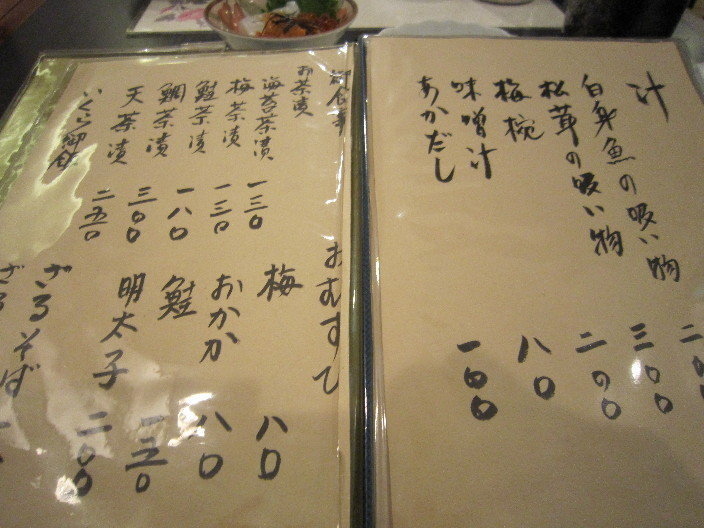 汁
白身魚の吸い物 二〇〇
松茸の吸い物 三〇〇
梅椀 二〇〇
味噌汁 八〇
あかだし 一〇〇
御食事
お茶漬
海苔茶漬 一三〇
梅茶漬 一三〇
鮭茶漬 一八〇
鯛茶漬 三〇〇
天茶漬 二五〇
いくら御飯
おむすび
梅 八〇
おかか 八〇
鮭
明太子 二〇〇
ざるそば
ざる